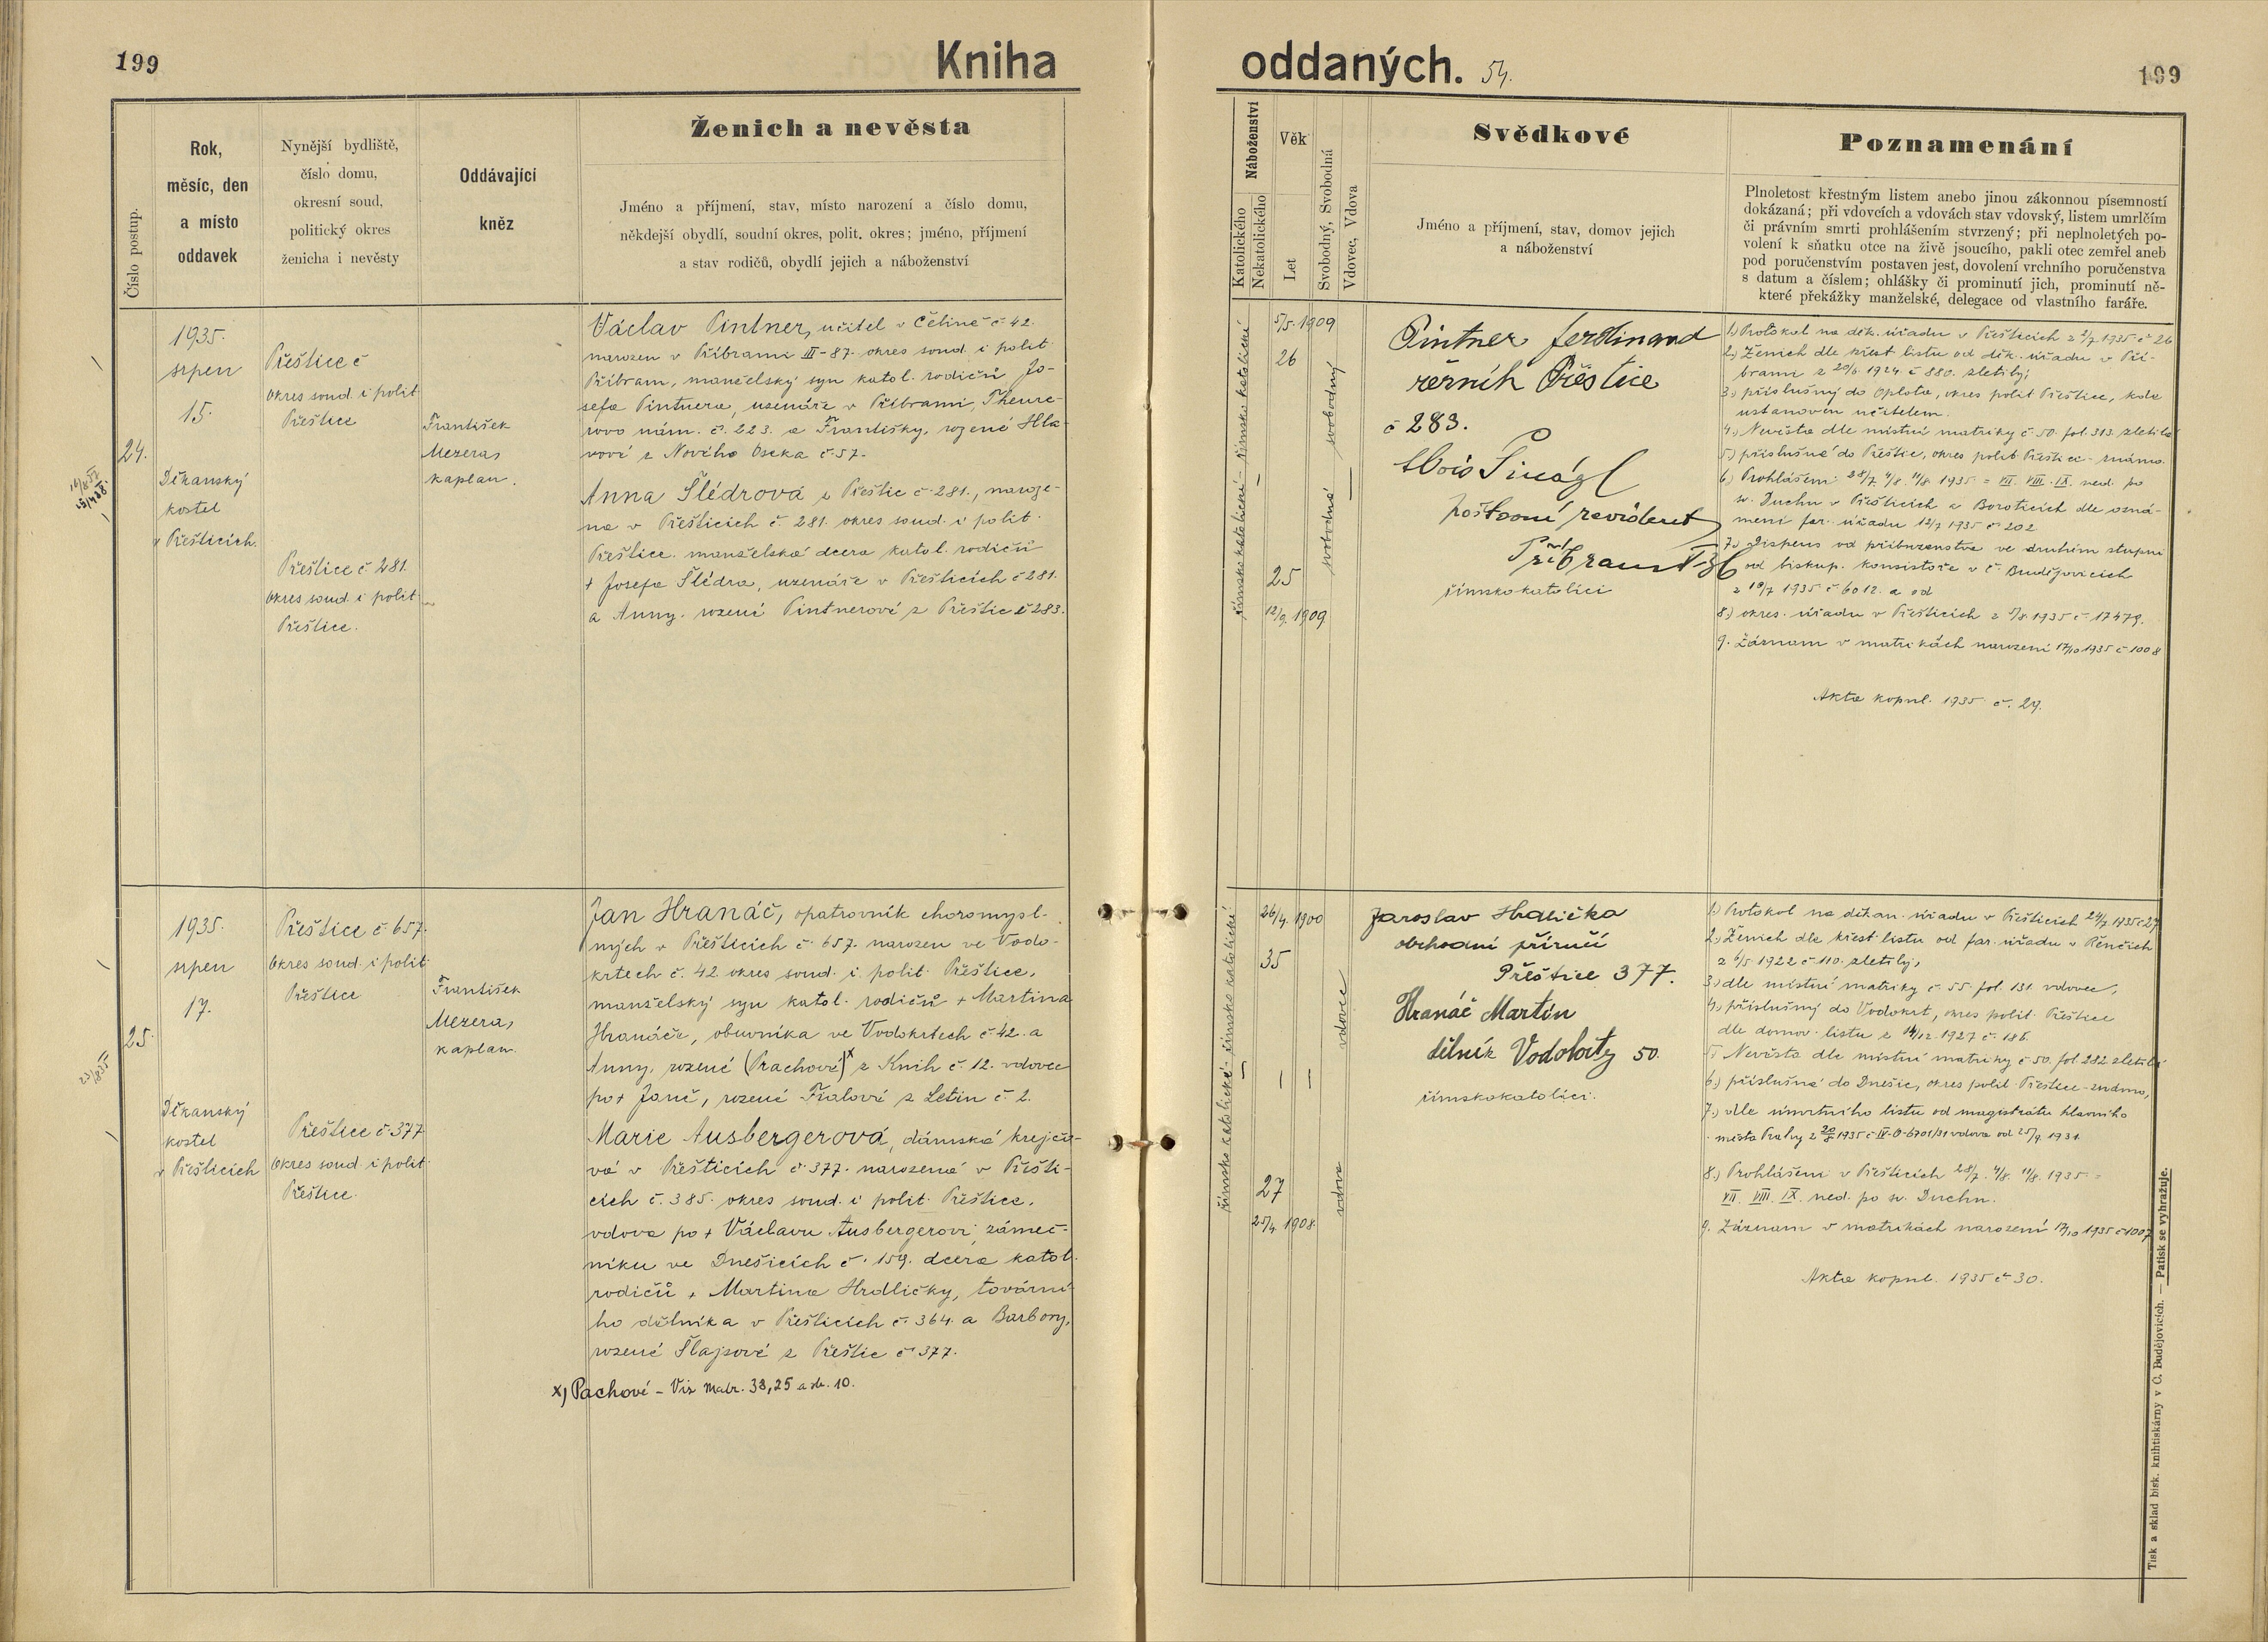 199
Kniha
oddaných. 54.
199
Číslo postup.
Rok,
měsíc, den
a místo
oddavek
Nynější bydliště,
číslo domu,
okresní soud,
politický okres
ženicha i nevěsty
Oddávající
kněz
Ženich a nevěsta
Jméno a příjmení, stav, místo narození a číslo domu,
někdejší obydlí, soudní okres, polit. okres; jméno, příjmení
a stav rodičů, obydlí jejich a náboženství
Náboženství
Katolického
Nekatolického
Věk
Let
Svobodný, Svobodná
Vdovec, Vdova
Svědkové
Jméno a příjmení, stav, domov jejich
a náboženství
Poznamenání
Plnoletost křestným listem anebo jinou zákonnou písemností
dokázaná; při vdovcích a vdovách stav vdovský, listem umrlčím
či právním smrti prohlášením stvrzený; při neplnoletých po-
volení k sňatku otce na živě jsoucího, pakli otec zemřel aneb
pod poručenstvím postaven jest, dovolení vrchního poručenstva
s datum a číslem; ohlášky či prominutí jich, prominutí ně-
které překážky manželské, delegace od vlastního faráře.
24.
1935.
srpen
15.
Děkanský
kostel
v Přešticích.
Přeštice č
okres soud. i polit.
Přeštice
Přeštice č 281.
okres soud. i polit.
Přeštice.
František
Mezera,
kaplan.
Václav Pintner, učitel v Čelině č 42.
narozen v Příbrami III-87. okres soud. i polit.
Příbram, manželský syn katol. rodičů Jo-
sefa Pintnera, uzenáře v Příbrami,
rovo nám. č. 223. a Františky, rozené Hla-
vové z Nového Oseka č 57.
Anna Šlédrová z Přeštic č 281., naroze-
na v Přešticích č. 281. okres soud. i polit.
Přeštice. manželská dcera katol. rodičů
+ Josefa Šlédra, uzenáře v Přešticích č 281.
a Anny. rozené Pintnerové z Přeštic č 283.
římsko katolické - římsko katolické
5/5. 1909
26
25
12/9. 1909
svobodný
svobodná
Pintner Ferdinand
řezník Přeštice
č 283.
Alois Šinágl
poštovní revident
Příbram
římskokatolíci
1.) Protokol na děk. úřadu v Přešticích z 2/7 1935 č 26
2.) Ženich dle křest. listu od děk. úřadu v Pří-
brami z 20/6. 1924. č 880. zletilý;
3.) příslušný do Oplota, okres polit Přeštice, kde
ustanoven učitelem.
4.) Nevěsta dle místní matriky č 50. fol. 313. zletilá
5.) příslušná do Přeštic, okres polit Přeštice - známo.
6.) Prohlášeni 28/7. 4/8. 11/8. 1935 = VII. VIII. IX. ned. po
sv. Duchu v Přešticích a Boroticích dle ozná-
mení far. úřadu 12/7 1935 č 202
7.) Dispens od příbuzenstva ve druhém stupni
od biskup. konsistoře v Č. Budějovicích
z 19/7 1935 č 6012. a od
8.) okres. úřadu v Přešticích z 5/8. 1935 č 17479.
9. Záznam v matrikách narození 17/10 1935 č 1008
Akta kopul. 1935. č. 29.
25.
1935.
srpen
17.
Děkanský
kostel
v Přešticích
Přeštice č 657.
okres soud. i polit
Přeštice
Přeštice č 377
okres soud. i polit.
Přeštice.
František
Mezera,
kaplan.
Jan Hranáč, opatrovník choromysl-
ných v Přešticích č. 657. narozen ve Vodo-
krtech č. 42 okres soud. i. polit. Přeštice,
manželský syn katol. rodičů + Martina
Hranáče, obuvníka ve Vodokrtech č 42. a
Anny, rozené (Prachové)x z Knih č. 12. vdovec
po + Janě, rozené Fialové z Letin č 2.
Marie Ausbergerová, dámská krejčo-
vá v Přešticích č 377. narozená v Přešti-
cích č. 385. okres soud. i polit. Přeštice,
vdova po + Václavu Ausbergerovi, zámeč-
níku ve Dnešicích č. 159. dcera katol.
rodičů + Martina Hrdličky, tovární-
ho dělníka v Přešticích č. 364. a Barbory,
rozené Šlajsové z Přeštic č 377.
x) Pachové - Viz matr. 38, 25 a db. 10.
římsko katolické - římsko katolické
26/4. 1900
35
27
25/4. 1908.
vdovec
vdova
Jaroslav Hrdlička
obchodní příručí
Přeštice 377.
Hranáč Martin
dělník Vodokrty 50.
římskokatolíci.
1.) Protokol na děkan. úřadu v Přešticích 24/7. 1935 č 27
2.) Ženich dle křest. listu od far. úřadu v Řenčích
z 6/5 1922 č 110. zletilý,
3.) dle místní matriky č 55. fol. 131. vdovec,
4.) příslušný do Vodokrt, okres polit. Přeštice
dle domov. listu z 14/12. 1927 č. 186.
5.) Nevěsta dle místní matriky č 50. fol. 282 zletilá
6.) příslušná do Dnešic, okres polit Přeštice - známo,
7.) dle úmrtního listu od magistrátu hlavního
města Prahy z 20/8 1935 č IV-O-6701/31 vdova od 25/9. 1931.
8.) Prohlášeni v Přešticích 28/7. 4/8. 11/8. 1935 =
VII. VIII. IX. ned. po sv. Duchu.
9. Záznam v matrikách narození 17/10 1935 č 1007
Akta kopul. 1935 č 30.
Tisk a sklad bisk. knihtiskárny v Č. Budějovicích. — Patisk se vyhražuje.